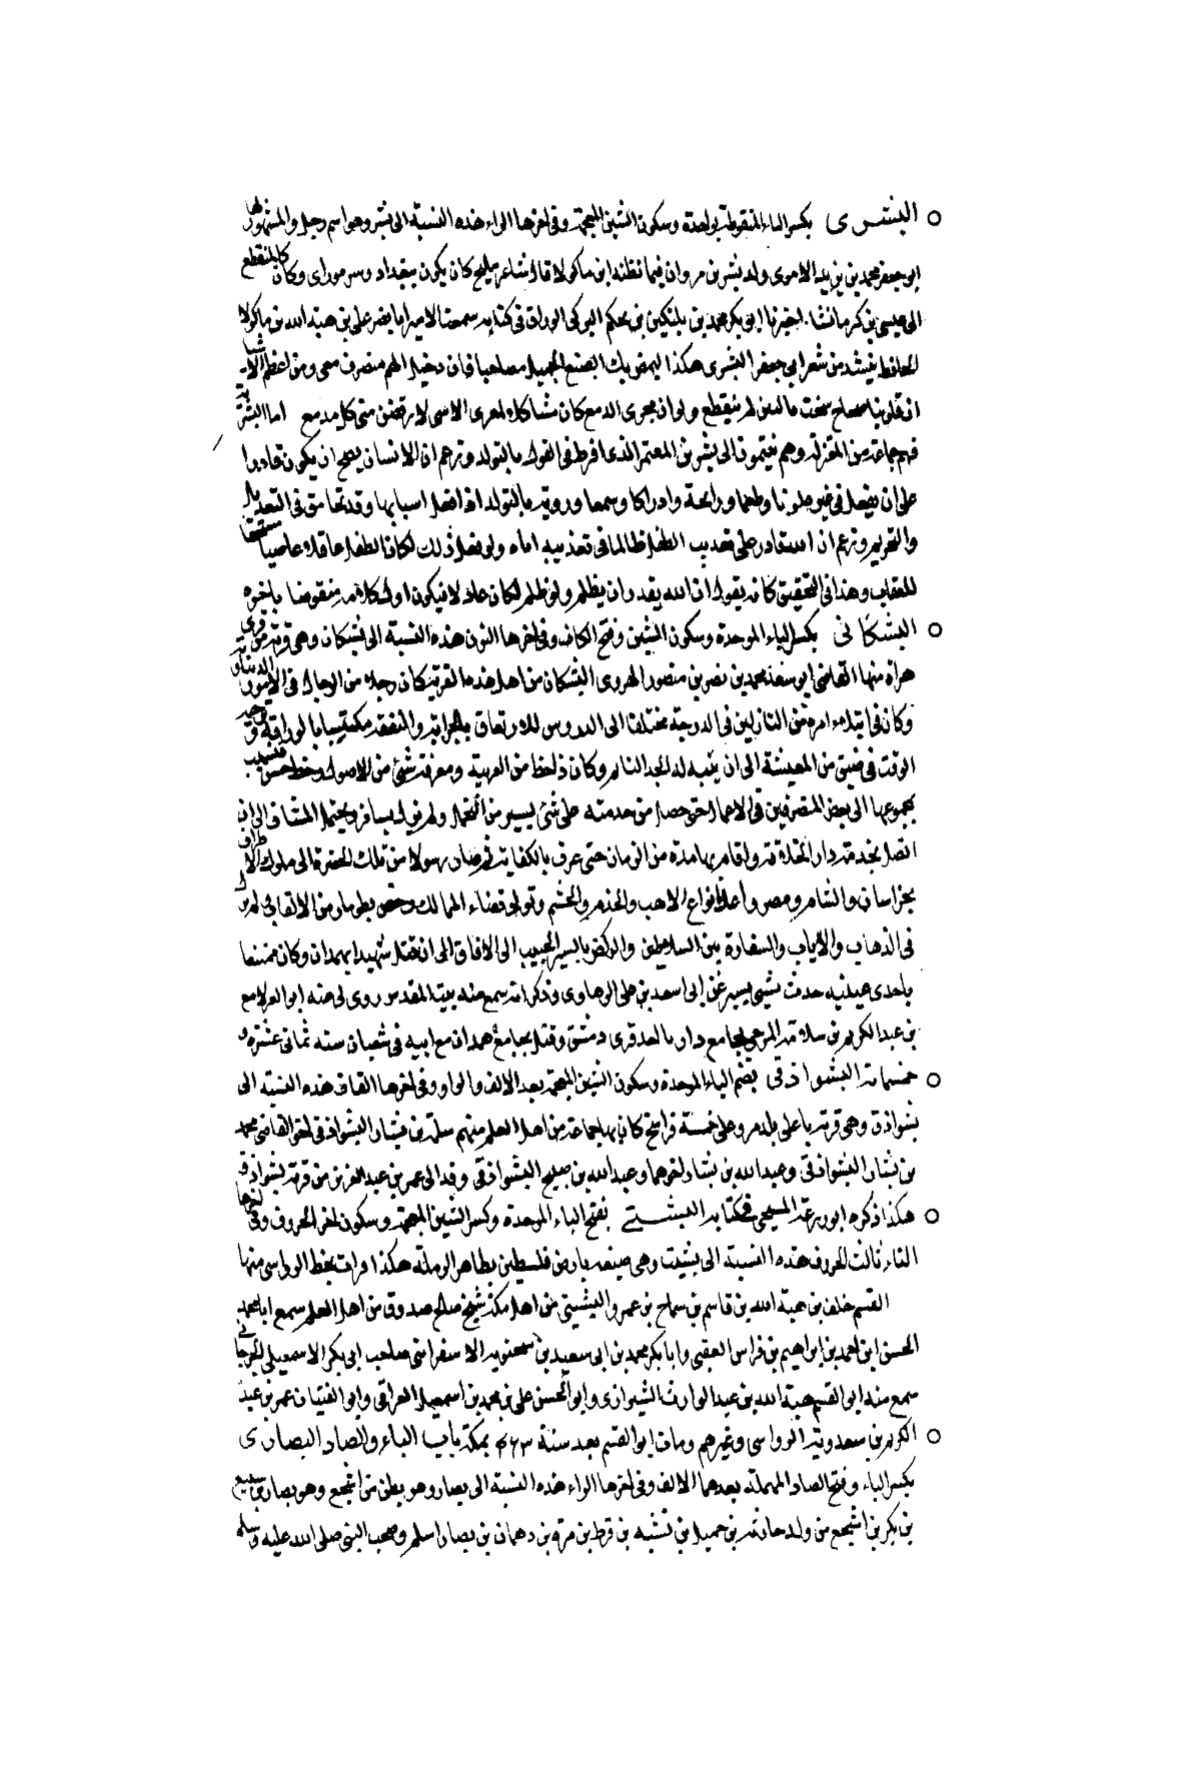 البشرى بكسر الباء المنقوطة بواحدة وسكون الشين المعجمة وفى اخرها الراء هذه النسبة الى بشر وهو اسم رجل والمشهور بها
ابو جعفر محمد بن يزيد الاموى ولد بشر بن مروان فيما نظنه ابن ماكولا قال شاعر مليح كان يكون ببغداد وسر من راى وكان كالمنقطع
الى عيسى بن فرخانشا. اخبرنا ابو بكر محمد بن بلنكين بن بحكم التركى الوراق فى كتابه سمعت الامير ابا نصر على بن هبة الله بن ماكولا
الحافظ ينشد من شعر ابى جعفر البشرى هكذا ليهن بك الصنع الجميل مصاحبا فان دخيل الهم منصرف معى ومن اعظم الاشيا
ان قلوبنا صحاح سخت بالبين لم يتقطع ولو ان مجرى الدمع كان مشاكلا لمعرى الاسى لا رفضن منى كل مدمع اما البشرية
فهم جماعة من المعتزلة وهم ينتمون الى بشر بن المعتمر الذى افرط فى القول بالتولد وزعم ان الانسان يصح ان يكون قادرا
على ان يفعل فى غيره لونا وطعما ورائحة وادراكا وسمعا وروية بالتولد اذا فعل اسبابها وقد تحامق فى التعديل
والتجوير وزعم ان الله قادر على تعذيب الطفل ظالما فى تعذيبه اياه ولو فعل ذلك لكان الطفل عاقلا عاصيا مستحقا
للعقاب وهذا فى التحقيق كانه يقول ان الله يقدر ان يظلم ولو ظلم لكان عادلا فيكون اول كلامه منقوضا باخره
البشكانى بكسر الباء الموحدة وسكون الشين وفتح الكاف وفى اخرها النون هذه النسبة الى بشكان وهى قرية من قرى
هراة منها القاضى ابو سعد محمد بن نصر بن منصور الهروى البشكانى من اهل هذه القرية كان رجلا من الرجال فى الامور الدنياوية
وكان فى ابتداء امره من النازلين فى الدرجة مختلفا الى الدروس للارتفاق بالجراية والتفقه مكتسبا بالوراقة
الوقت فى ضيق من المعيشة الى ان ينبه له الجد النائم وكان ذا حظ من العربية ومعرفة شئ من الاصول وخط حسن فتسبب
بمجموعها الى بعض المتصرفين فى الاعمال حتى حصل من خدمته على شئ يسير من التجمل ولم يزل يسافر ويحتمل المشاق الى ان
اتصل بخدمة دار الخلافة واقام بها مدة من الزمان حتى عرف بالكفاية فصار رسولا من تلك الحضرة الى ملوك الاطراف
بخراسان والشام ومصر واعد انواع الاهب والخدم والحشم وتولى قضاء الممالك وخص بطومار من الالقاب ولم يزل
فى الذهاب والاياب والسفارة بين السلاطين والركض بالسير الجيب الى الافاق الى ان قتل شهيدا بهمدان وكان ممتنعا
باحدى عينيه حدث بشئ يسير عن ابى اسعد بن على الرهاوى وذكر انه سمع منه ببيت المقدس روى لى عنه ابو العلا مع
بن عبد الكريم بن سلامة المرحى بجامع دار بالعدقرى دمشق وقتل بجامع همدان مع ابيه فى شعبان سنه ثمانى عشرة و
خمسمائة البشواذقى بضم الباء الموحدة وسكون الشين المعجمة بعد الالف والواو وفى اخرها القاف هذه النسبة الى
بشواذق وهى قرية باعلى بلد مرو على خمسة فراسخ كان بها جماعة من اهل العلم منهم سلمة بن بشار البشواذقى اخو القاضى محمد
بن بشار البشواذقى وعبد الله بن بشار اخوهما وعبد الله بن صبيح البشواذقى وفد الى عمر بن عبد العزيز من قرية بشواذق
هكذا ذكره ابو زرعة المسيحى فى كتابه البشيتى بفتح الباء الموحدة وكسر الشين المعجمة وسكون اخر الحروف وفى اخرها
التاء ثالث الحروف هذه النسبة الى بشيت وهى ضيعة بارض فلسطين بظاهر الرملة هكذا قرات بخط الرواسى منها
القسم خلف بن هبة الله بن قاسم بن سماح بن عمرو البشيتى من اهل مكة شيخ صالح صدوق من اهل العلم سمع ابا محمد
الحسن ابن احمد بن ابراهيم بن فراس العبقسى وابا بكر محمد بن ابى سعيد بن سختويه الاسفراينى صاحب ابى بكر الاسمعيلى الجرجانى
سمع منه ابو القسم هبة الله بن عبد الوارث الشيرازى وابو الحسن على بن محمد بن اسمعيل العراقى وابو الفتيان عمر بن عبد
الكريم بن سعدويه الرواسى وغيرهم ومات ابو القسم بعد سنة ٤٦٣ بمكة باب الباء والصاد البصارى
بكسر الباء وفتح الصاد المهملة بعدهما الالف وفى اخرها الراء هذه النسبة الى بصار وهو بطن من اشجع وهو بصار بن سبيع
بن بكر بن اشجع من ولده جارية بن حميل بن نشبة بن قرط بن مرة بن دهمان بن بصار اسلم وصحب النبى صلى الله عليه وسلم